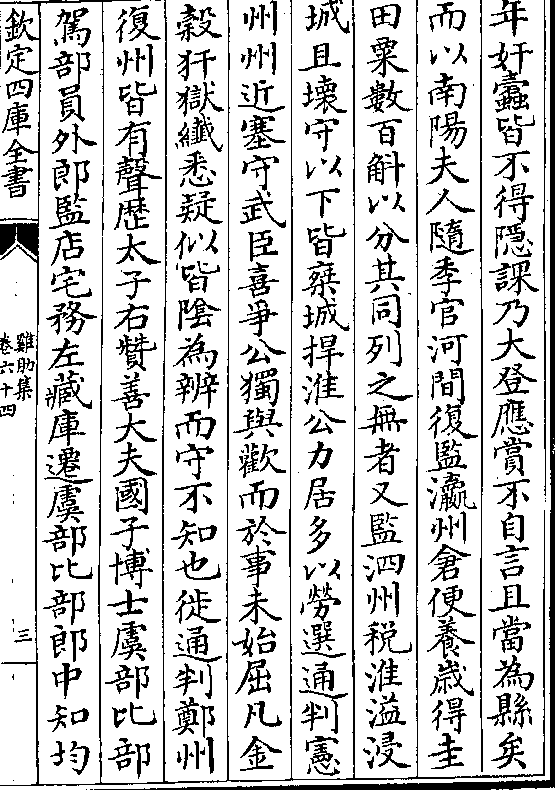 年奸蠹皆不得隱課乃大登應賞不自言且當為縣矣
而以南陽夫人隨季官河間復監瀛州倉便養歳得圭
田粟數百斛以分其同列之無者又監泗州税淮溢浸
城且壞守以下皆棄城捍淮公力居多以勞選通判憲
州州近塞守武臣喜爭公獨與歡而於事未始屈凡金
穀犴獄纎悉疑似皆陰為辨而守不知也徙通判鄭州
復州皆有聲歴太子右賛善大夫國子博士虞部比部
駕部員外郎監店宅務左藏庫遷虞部比部郎中知均
欽定四庫全書
雞肋集
卷六十四
三